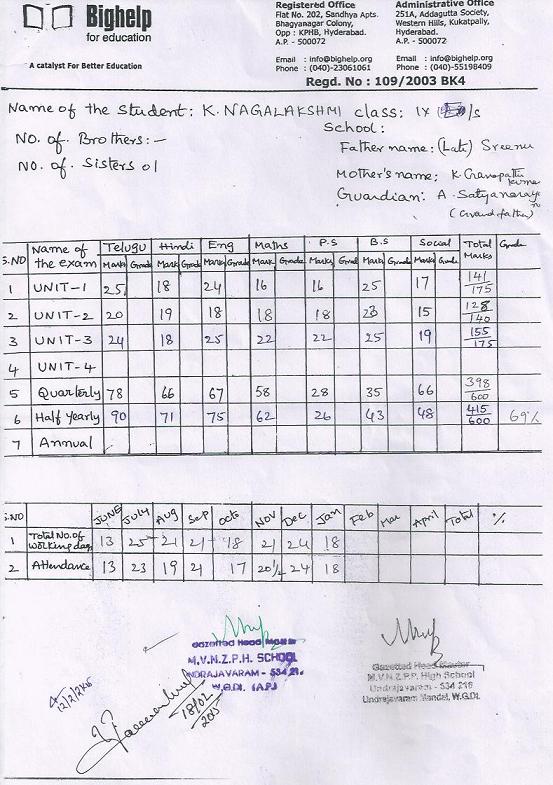 Bighelp
for education
A catalyst For Better Education
Registered Office
Flat No. 202, Sandhya Apts.
Bhagyanagar Colony,
Opp : KPHB, Hyderabad.
A.P. - 500072
Email : info@bighelp.org
Phone : (040)-23061061
Administrative Office
251A, Addagutta Society,
Western Hills, Kukatpally,
Hyderabad.
A.P. - 500072
Email : info@bighelp.org
Phone : (040)-55198409
Regd. No : 109/2003 BK4
Name of the Student: K. NAGALAKSHMI class: IX /s
School:
No. of. Brothers:-
No. of. Sisters 01
Father name: (Late) Sreenu
Mother's name: K
Guardian: A. Satyanaraya
(Grand father)
S.NO Name of the exam Telugu Hindi Eng Maths P.S B.S Social Total Marks Grade
Mark Grade Mark Grade Mark Grade Mark Grade Mark Grade Mark Grade Mark Grade
1 UNIT-1 25 18 24 16 16 25 17 141/175
2 UNIT-2 20 19 18 18 18 15 128/140
3 UNIT-3 24 18 25 22 22 25 19 155/175
4 UNIT-4
5 Quarterly 78 66 67 58 28 35 66 398/600
6 Half Yearly 90 71 75 62 26 43 48 415/600 69%
7 Annual
S.NO JUNE July Aug Sep Octo Nov Dec Jan Feb Mar April Total %
1 Total No. of working days 13 25 21 21 18 21 24 18
2 Attendance 13 23 19 21 17 20½ 24 18
Gazetted Head Master
M.V.N.Z.P.H. SCHOOL
UNDRAJAVARAM - 534 216
W.G.Dt. (A.P.)
18/02
Gazetted Head Master
M.V.N.Z.P.P. High School
Undrajavaram - 534 216
Undrajavaram Mandel, W.G.Dt.